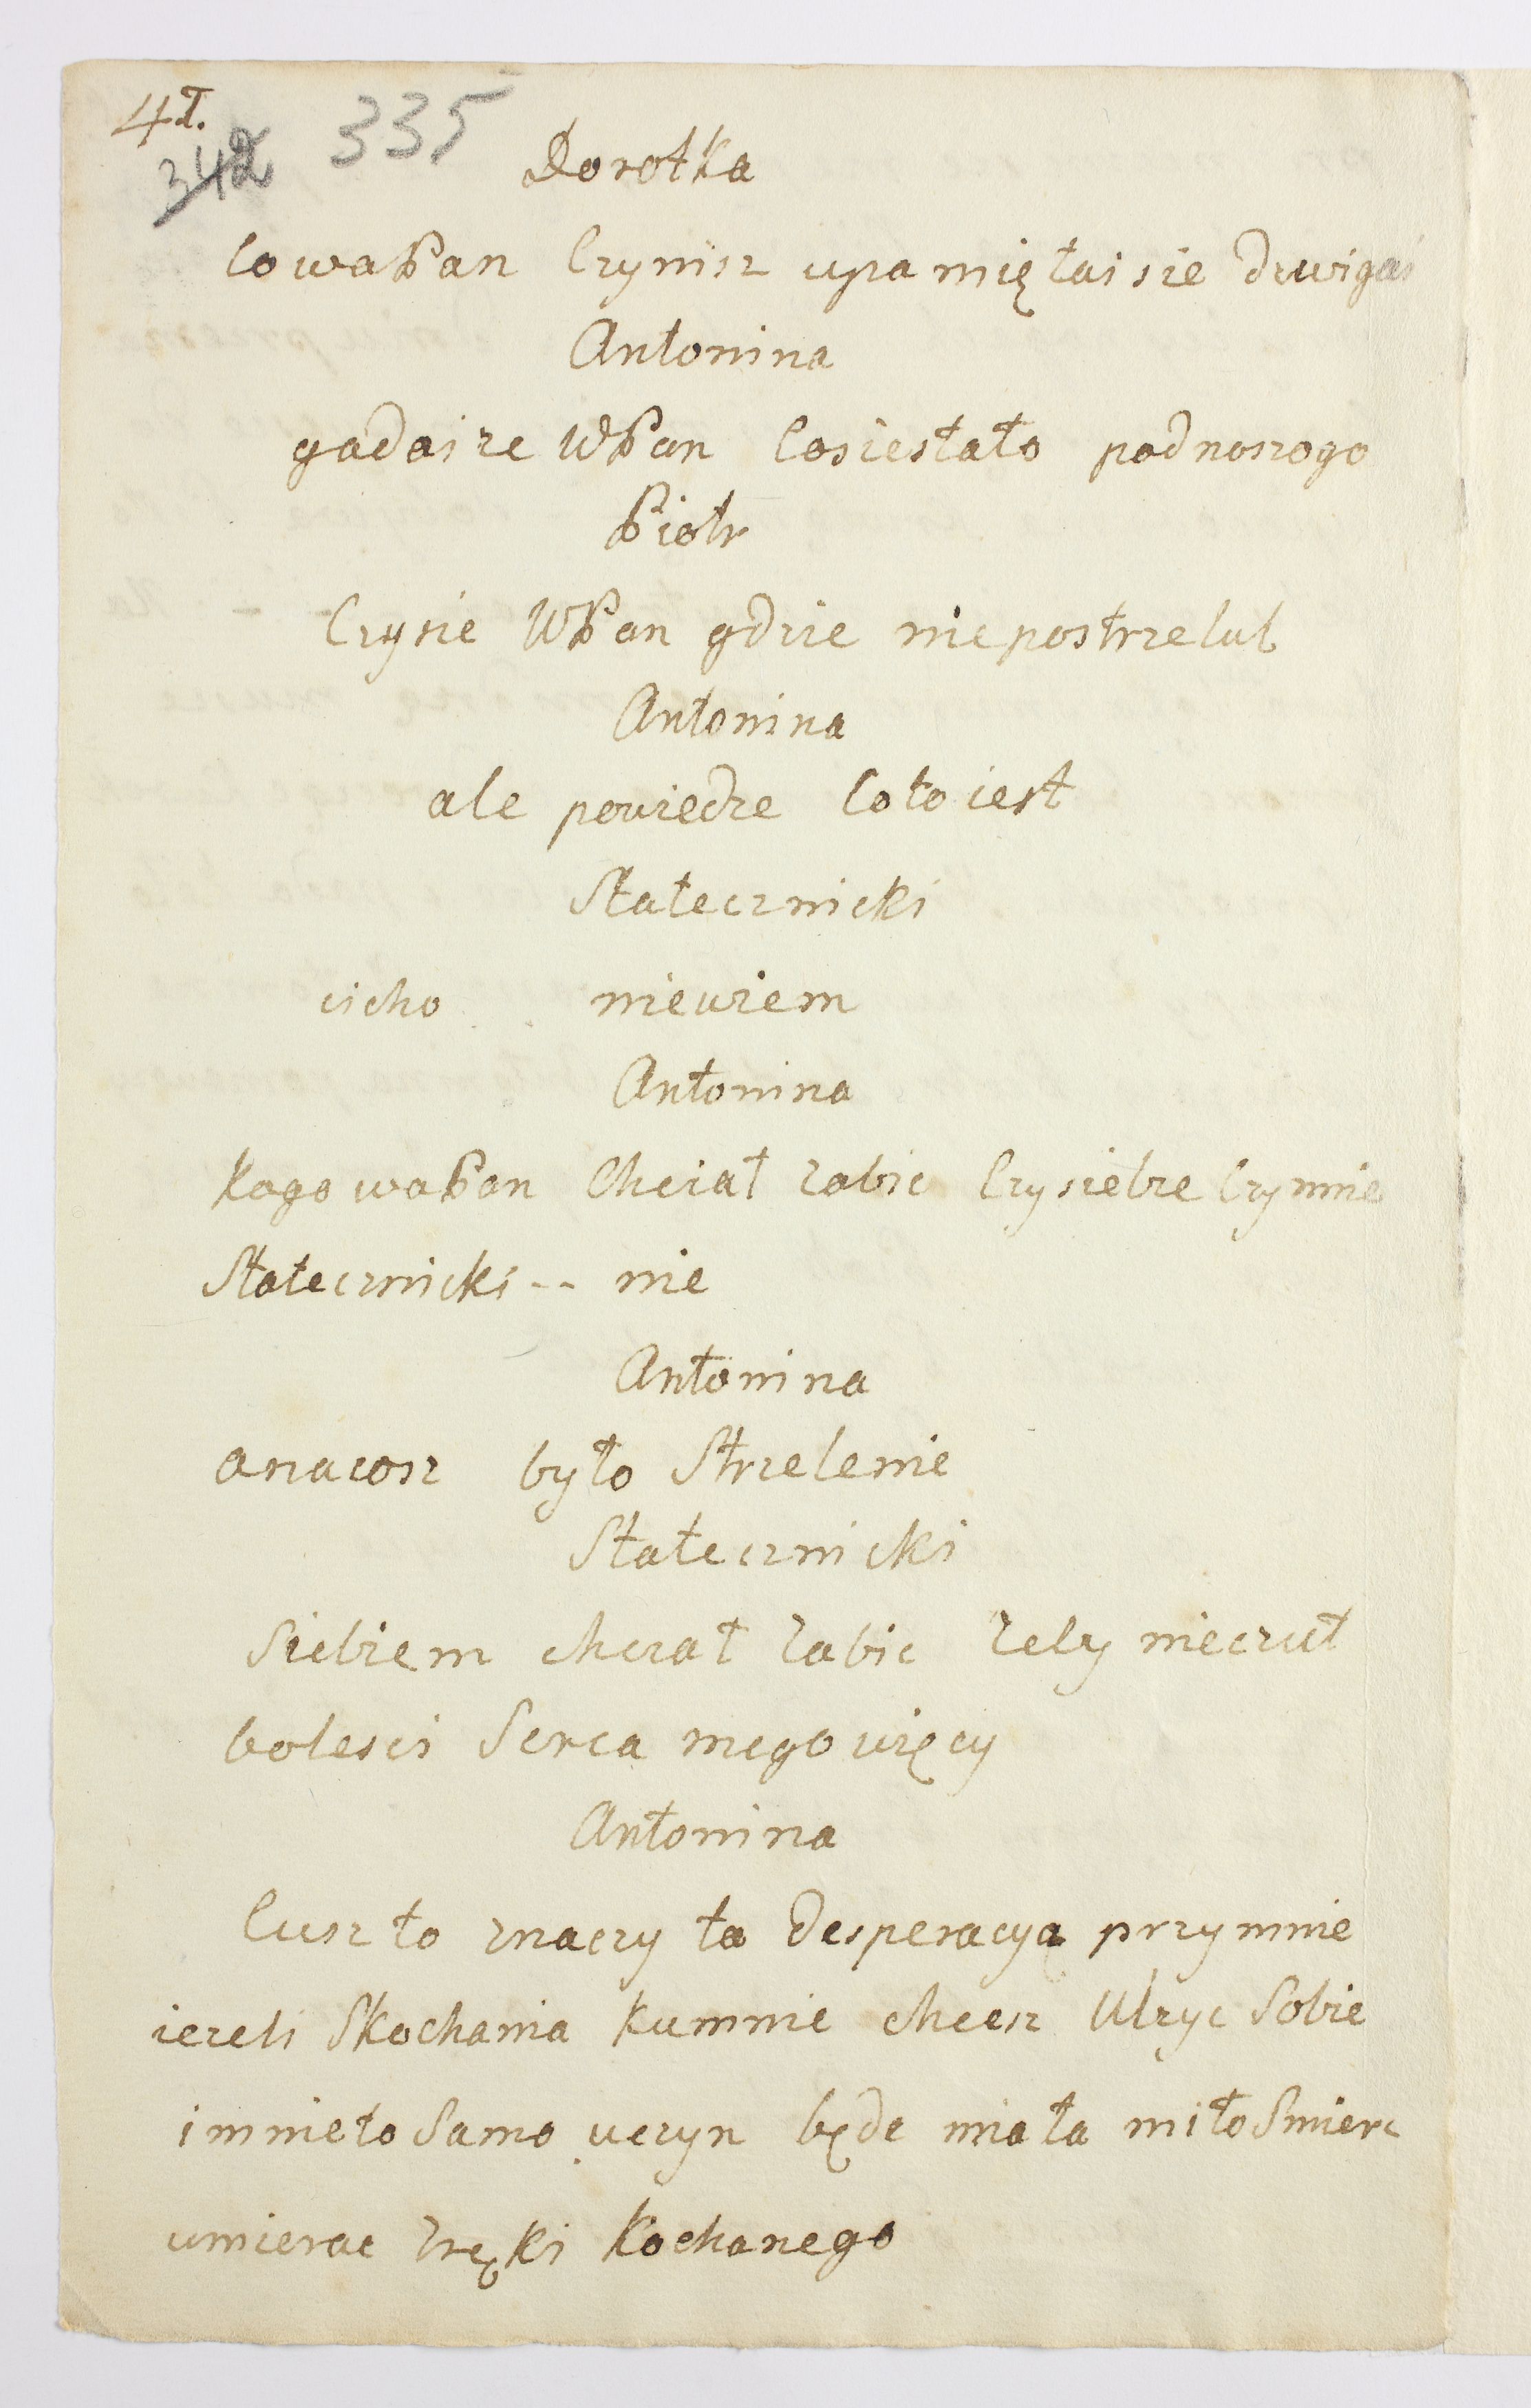 41.
342 335
Dorotka
Co waPan Czynisz upamiętai sie dzwigai
Antonina
gadaize WPan Cosiestało podnoszogo
Piotr
Czysie WPan gdzie niepostrzelul
Antonina
ale powiedze Coto iest
Statecznicki
cicho niewiem
Antonina
Kogo waPan Chciał zabic Czysiebze Czymnie
Statecznicki -- nie
Antonina
anacosz było Strzelenie
Statecznicki
Siebiem chciał zabic zeby nieczuł
bolesci Serca mego więcy
Antonina
Cusz to znaczy ta Desperacyą przymnie
iezeli Skochania kumnie chcesz Ulzyc Sobie
imnieto Samo uczyn będe miała miłoSmierc
umierac zręki Kochanego